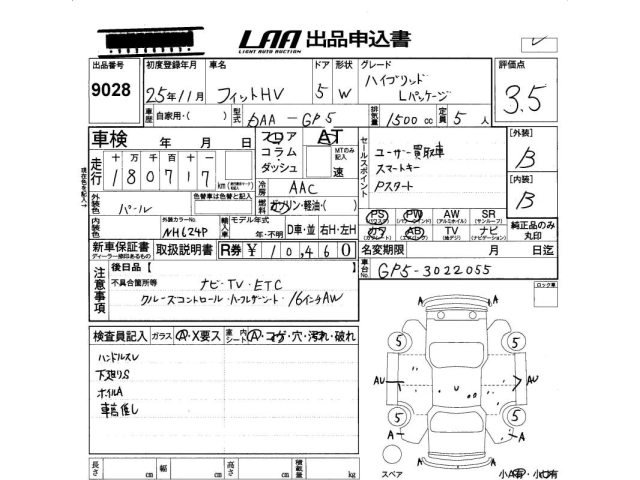 LAA 出品申込書
LIGHT AUTO AUCTION
出品番号 初度登録年月 車名 ドア 形状 グレード 評価点
9028 25年11月 フィットHV 5 W ハイブリッド Lパッケージ 3.5
車歴 自家用・( ) 型式 DAA-GP5 排気量 1500cc 定員 5人
車検 年 月 日
フロア AT
コラム・ MTのみ記入
ダッシュ 速
セールスポイント
ユーザー買取車
スマートキー
Pスタート
[外装] B
[内装] B
走行 十万 万 千 百 十 一
180717 km
現在色を記入↑
冷房 AAC
外装色 パール
色替車は色替と記入
燃料 ガソリン・軽油・( )
PS (パワステ) PW (パワーウィンドウ) AW (アルミホイル) SR (サンルーフ)
カワ AB TV (地デジ) ナビ (ナビゲーション)
純正品のみ丸印
外装カラーNo. NH624P
輸入車 モデル年式 年・不明 D車・並 右H・左H
新車保証書 取扱説明書 R券 ¥10,460
ディーラー捺印あるもの
名変期限 月 日迄
車台No. GP5-3022055
注意事項
後日品【 】
不具合箇所等 ナビ・TV・ETC
クルーズコントロール・ハーフレザーシート・16インチAW
ロック車
検査員記入 ガラス A・X要ス 室内シート A・コゲ・穴・汚れ・破れ
ハンドルスレ
下廻りS
ホイルA
車高推し
A A
5 5
AU U AU
5 5
A A
スペア 小A有・小U有
長さ cm 幅 cm 高さ cm 積載量 kg